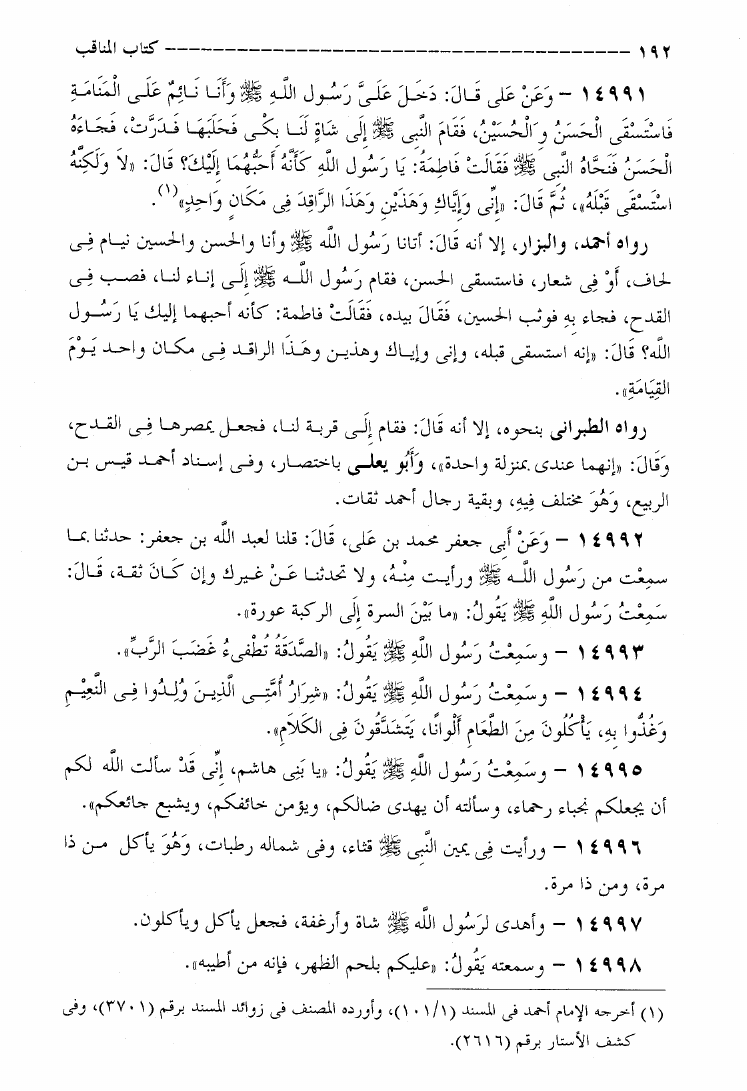 ١٩٢ ــــــــــــــــــــــــــــــــــــــــــــــــــ كتاب المناقب
١٤٩٩١ – وَعَنْ على قَـالَ: دَخَـلَ عَلَـىَّ رَسُـول اللَّـهِ ﷺ وَأَنَـا نَـائِمٌ عَلَـى الْمَنَامَـةِ
فَاسْتَسْقَى الْحَسَنُ وَالْحُسَيْنُ، فَقَامَ النَّبِى ﷺ إِلَى شَاةٍ لَنَـا بِكْـى فَحَلَبَهَـا فَـدَرَّتْ، فَجَـاءَهُ
الْحَسَنُ فَنَحَّاهُ النَّبِى ﷺ فَقَالَتْ فَاطِمَةُ: يَا رَسُول اللَّهِ كَأَنَّهُ أَحَبُّهُمَا إِلَيْكَ؟ قَالَ: «لاَ وَلَكِنَّهُ
اسْتَسْقَى قَبْلَهُ»، ثُمَّ قَالَ: «إِنِّى وَإِيَّاكِ وَهَذَيْنِ وَهَذَا الرَّاقِدَ فِى مَكَانٍ وَاحِدٍ»(١).
رواه أحمد، والبزار، إلا أنه قَالَ: أتانا رَسُول الله ﷺ وأنا والحسن والحسين نيـام فِـى
لحاف، أَوْ فِى شعار، فاستسقى الحسن، فقام رَسُول اللـه ﷺ إِلَـى إناء لنـا، فصـب فِـى
القدح، فجاء بِهِ فوثب الحسين، فَقَالَ بيده، فَقَالَتْ فاطمة: كأنه أحبهما إليك يَا رَسُـول
الله؟ قَالَ: «إنه استسقى قبله، وإنى وإيـاك وهذيـن وهَـذَا الراقـد فِـى مكـان واحـد يَـوْمَ
القِيَامَةِ».
رواه الطبرانى بنحوه، إلا أنه قَالَ: فقام إِلَـى قربـة لنـا، فجعـل يمصرهـا فِـى القـدح،
وَقَالَ: «إنهما عندى بمنزلة واحدة»، وَأَبُو يعلـى باختصـار، وفـى إسـناد أحمـد قيـس بـن
الربيع، وَهُوَ مختلف فِيهِ، وبقية رجال أحمد ثقات.
١٤٩٩٢ – وَعَنْ أَبِى جعفر محمد بن على، قَالَ: قلنا لعبد اللَّه بن جعفر: حدثنـا بمـا
سمِعْت من رَسُول اللـه ﷺ ورأيـت مِنْـهُ، ولا تحدثنـا عَـنْ غـيرك وإن كَـانَ ثقـة، قَـالَ:
سَمِعْتُ رَسُول اللَّهِ ﷺ يَقُولُ: «ما بَيْنَ السرة إِلَى الركبة عورة».
١٤٩٩٣ – وسَمِعْتُ رَسُول اللَّهِ ﷺ يَقُولُ: «الصَّدَقَةُ تُطْفِىءُ غَضَبَ الرَّبِّ».
١٤٩٩٤ – وسَمِعْتُ رَسُول اللَّهِ ﷺ يَقُولُ: «شِرَارُ أُمَّتِـى الَّذِيـنَ وُلِـدُوا فِـى النَّعِيْـمِ
وَغُذُّوا بِهِ، يَأْكُلُونَ مِنَ الطَّعَامِ أَلْوَانًا، يَتَشَدَّقُونَ فِى الكَلاَمِ».
١٤٩٩٥ – وسَمِعْتُ رَسُول اللَّهِ ﷺ يَقُولُ: «يا بَنِى هاشم، إِنِّى قَدْ سألت اللَّه لكم
أن يجعلكم نجباء رحماء، وسألته أن يهدى ضالكم، ويؤمن خائفكم، ويشبع جائعكم».
١٤٩٩٦ – ورأيت فِى يمين النَّبِى ﷺ قثاء، وفى شماله رطبات، وَهُوَ يأكل مـن ذا
مرة، ومن ذا مرة.
١٤٩٩٧ – وأهدى لرَسُول اللَّه ﷺ شاة وأرغفة، فجعل يأكل ويأكلون.
١٤٩٩٨ – وسمعته يَقُولُ: «عليكم بلحم الظهر، فإنه من أطيبه».
(١) أخرجه الإمام أحمد فى المسند (١٠١/١)، وأورده المصنف فى زوائد المسند برقم (٣٧٠١)، وفى
كشف الأستار برقم (٢٦١٦).